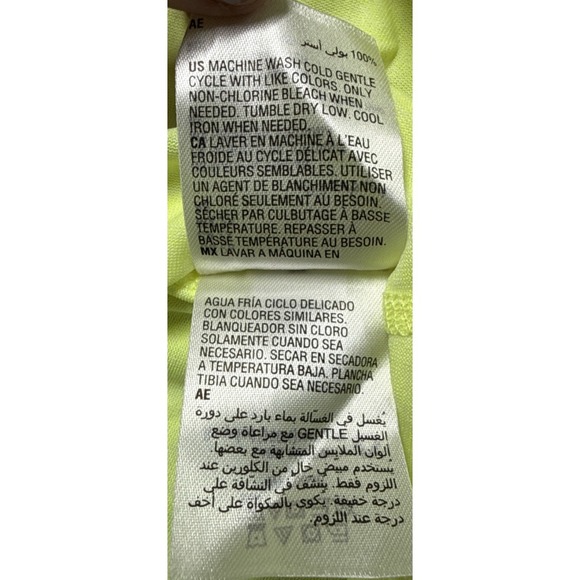 AE
100% بولي أستر
US MACHINE WASH COLD GENTLE
CYCLE WITH LIKE COLORS. ONLY
NON-CHLORINE BLEACH WHEN
NEEDED. TUMBLE DRY LOW. COOL
IRON WHEN NEEDED.
CA LAVER EN MACHINE À L'EAU
FROIDE AU CYCLE DÉLICAT AVEC
COULEURS SEMBLABLES. UTILISER
UN AGENT DE BLANCHIMENT NON
CHLORÉ SEULEMENT AU BESOIN.
SÉCHER PAR CULBUTAGE À BASSE
TEMPÉRATURE. REPASSER À
BASSE TEMPÉRATURE AU BESOIN.
MX LAVAR A MÁQUINA EN
AGUA FRÍA CICLO DELICADO
CON COLORES SIMILARES.
BLANQUEADOR SIN CLORO
SOLAMENTE CUANDO SEA
NECESARIO. SECAR EN SECADORA
A TEMPERATURA BAJA. PLANCHA
TIBIA CUANDO SEA NECESARIO.
AE
يُغسل في الغسّالة بماء بارد على دورة
الغسيل GENTLE مع مراعاة وضع
ألوان الملابس المتشابهه مع بعضها.
يستخدم مبيض خال من الكلورين عند
اللزوم فقط. ينشف في النشافة على
درجة خفيفة. يكوى بالمكواة على أخف
درجة عند اللزوم.